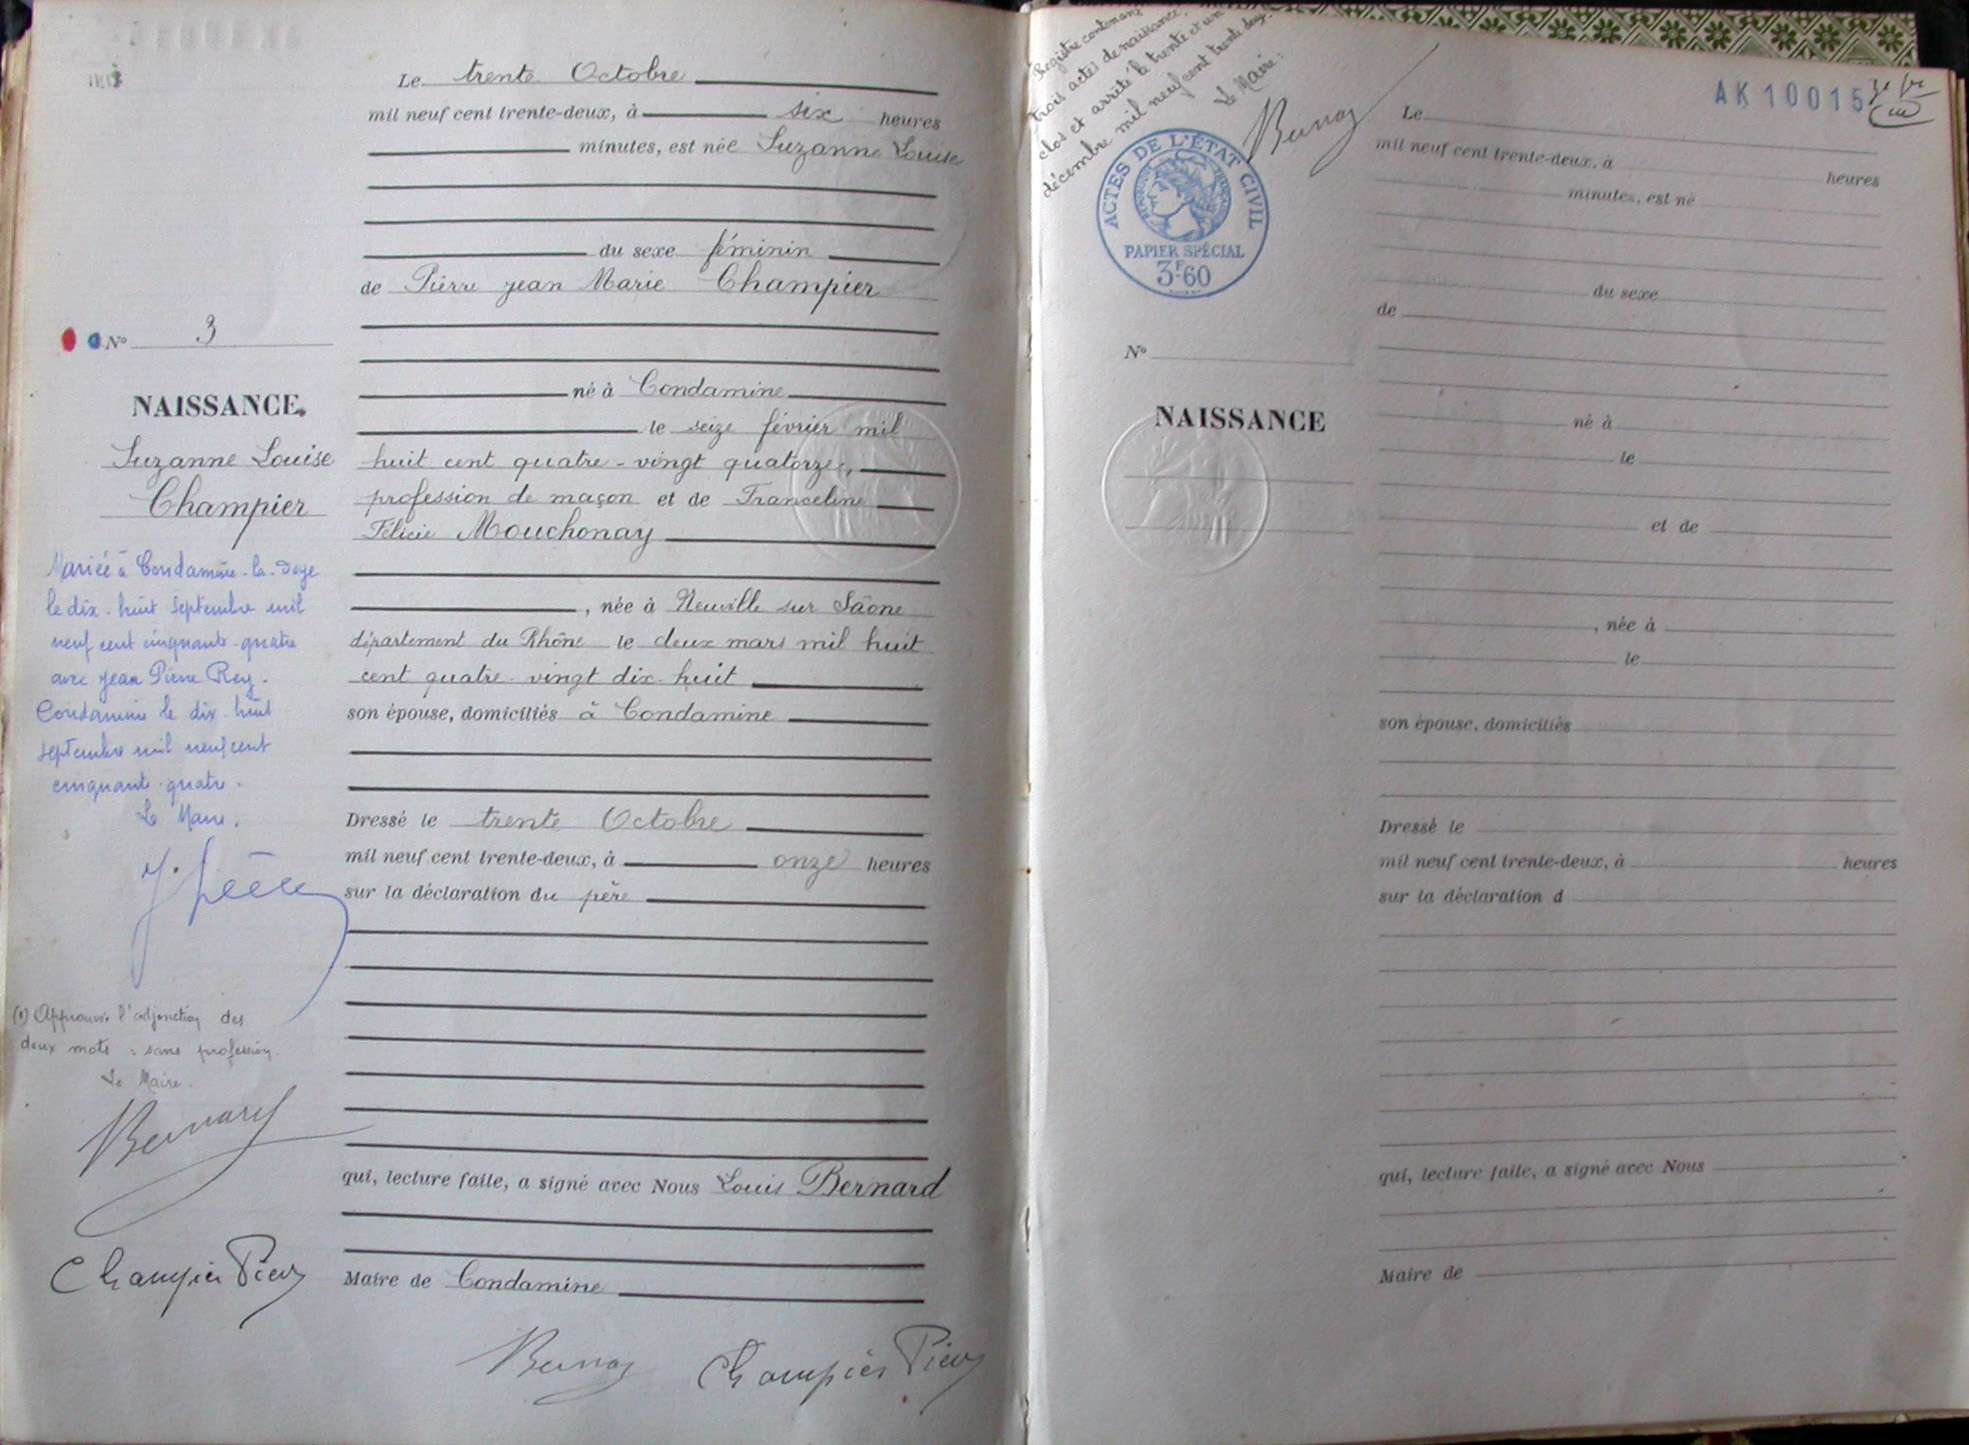 Le trente Octobre
mil neuf cent trente-deux, à six heures
minutes, est née Suzanne Louise
du sexe féminin
de Pierre Jean Marie Champier
né à Condamine
le seize février mil
huit cent quatre-vingt quatorze,
profession de maçon et de Franceline
Félicie Mouchonay
, née à Neuville sur Saône
département du Rhône le deux mars mil huit
cent quatre-vingt dix-huit
son épouse, domiciliés à Condamine
Dressé le trente Octobre
mil neuf cent trente-deux, à onze heures
sur la déclaration du père
qui, lecture faite, a signé avec Nous Louis Bernard
Maire de Condamine
Champier Pierre
No 3
NAISSANCE.
Suzanne Louise
Champier
Mariée à Condamine-la-Doye
le dix-huit septembre mil
neuf cent cinquante-quatre
avec Jean Pierre Rey.
Condamine le dix-huit
septembre mil neuf cent
cinquante-quatre.
Le Maire,
(1) Approuvée l'adjonction des
deux mots : sans profession.
Le Maire.
Bernard
Champier Pierre
Registre contenant
trois actes de naissance,
clos et arrêté le trente et un
décembre mil neuf cent trente deux.
Le Maire:
ACTES DE L'ÉTAT CIVIL
PAPIER SPÉCIAL
3F60
AK10015
Le
mil neuf cent trente-deux, à heures
minutes, est né
du sexe
de
No
NAISSANCE
né à
le
et de
, née à
le
son épouse, domiciliés
Dressé le
mil neuf cent trente-deux, à heures
sur la déclaration d
qui, lecture faite, a signé avec Nous
Maire de